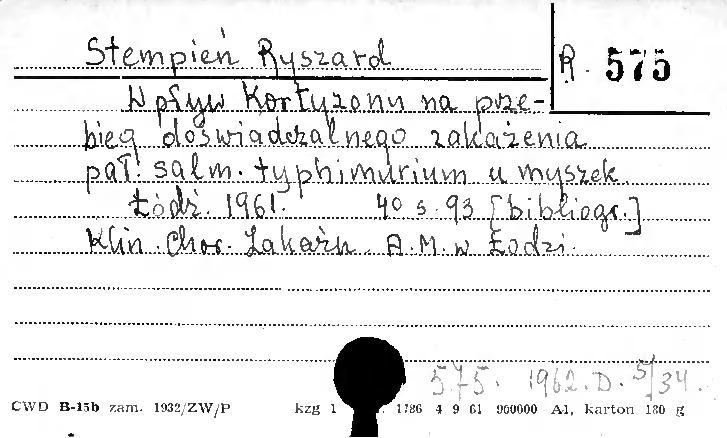 Stempień Ryszard
R. 575
Wpływ Kortyzonu na prze-
bieg doświadczalnego zakażenia
pał. salm. typhimurium u myszek.
Łódź. 1961. 40 s. 93 [bibliogr.]
Klin. Chor. Zakaźn. A.M. w Łodzi.
575. 1962. D. 5/34.
CWD B-15b zam. 1932/ZW/P kzg 1 1786 4 9 61 900000 A1, karton 180 g